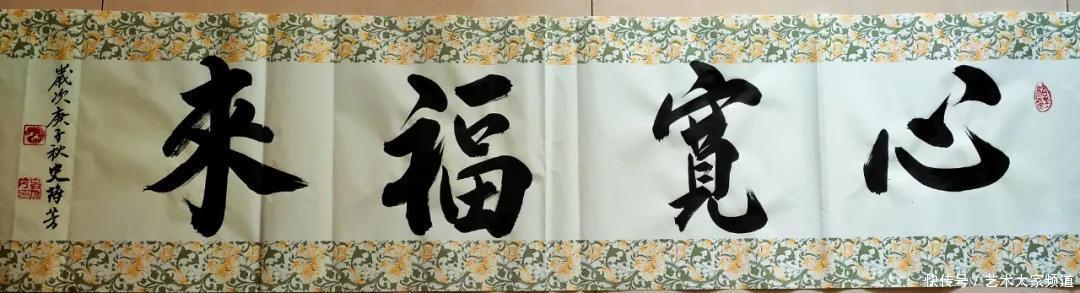 心寬福來
歲次庚子秋史
快传号 / 艺术大家频道